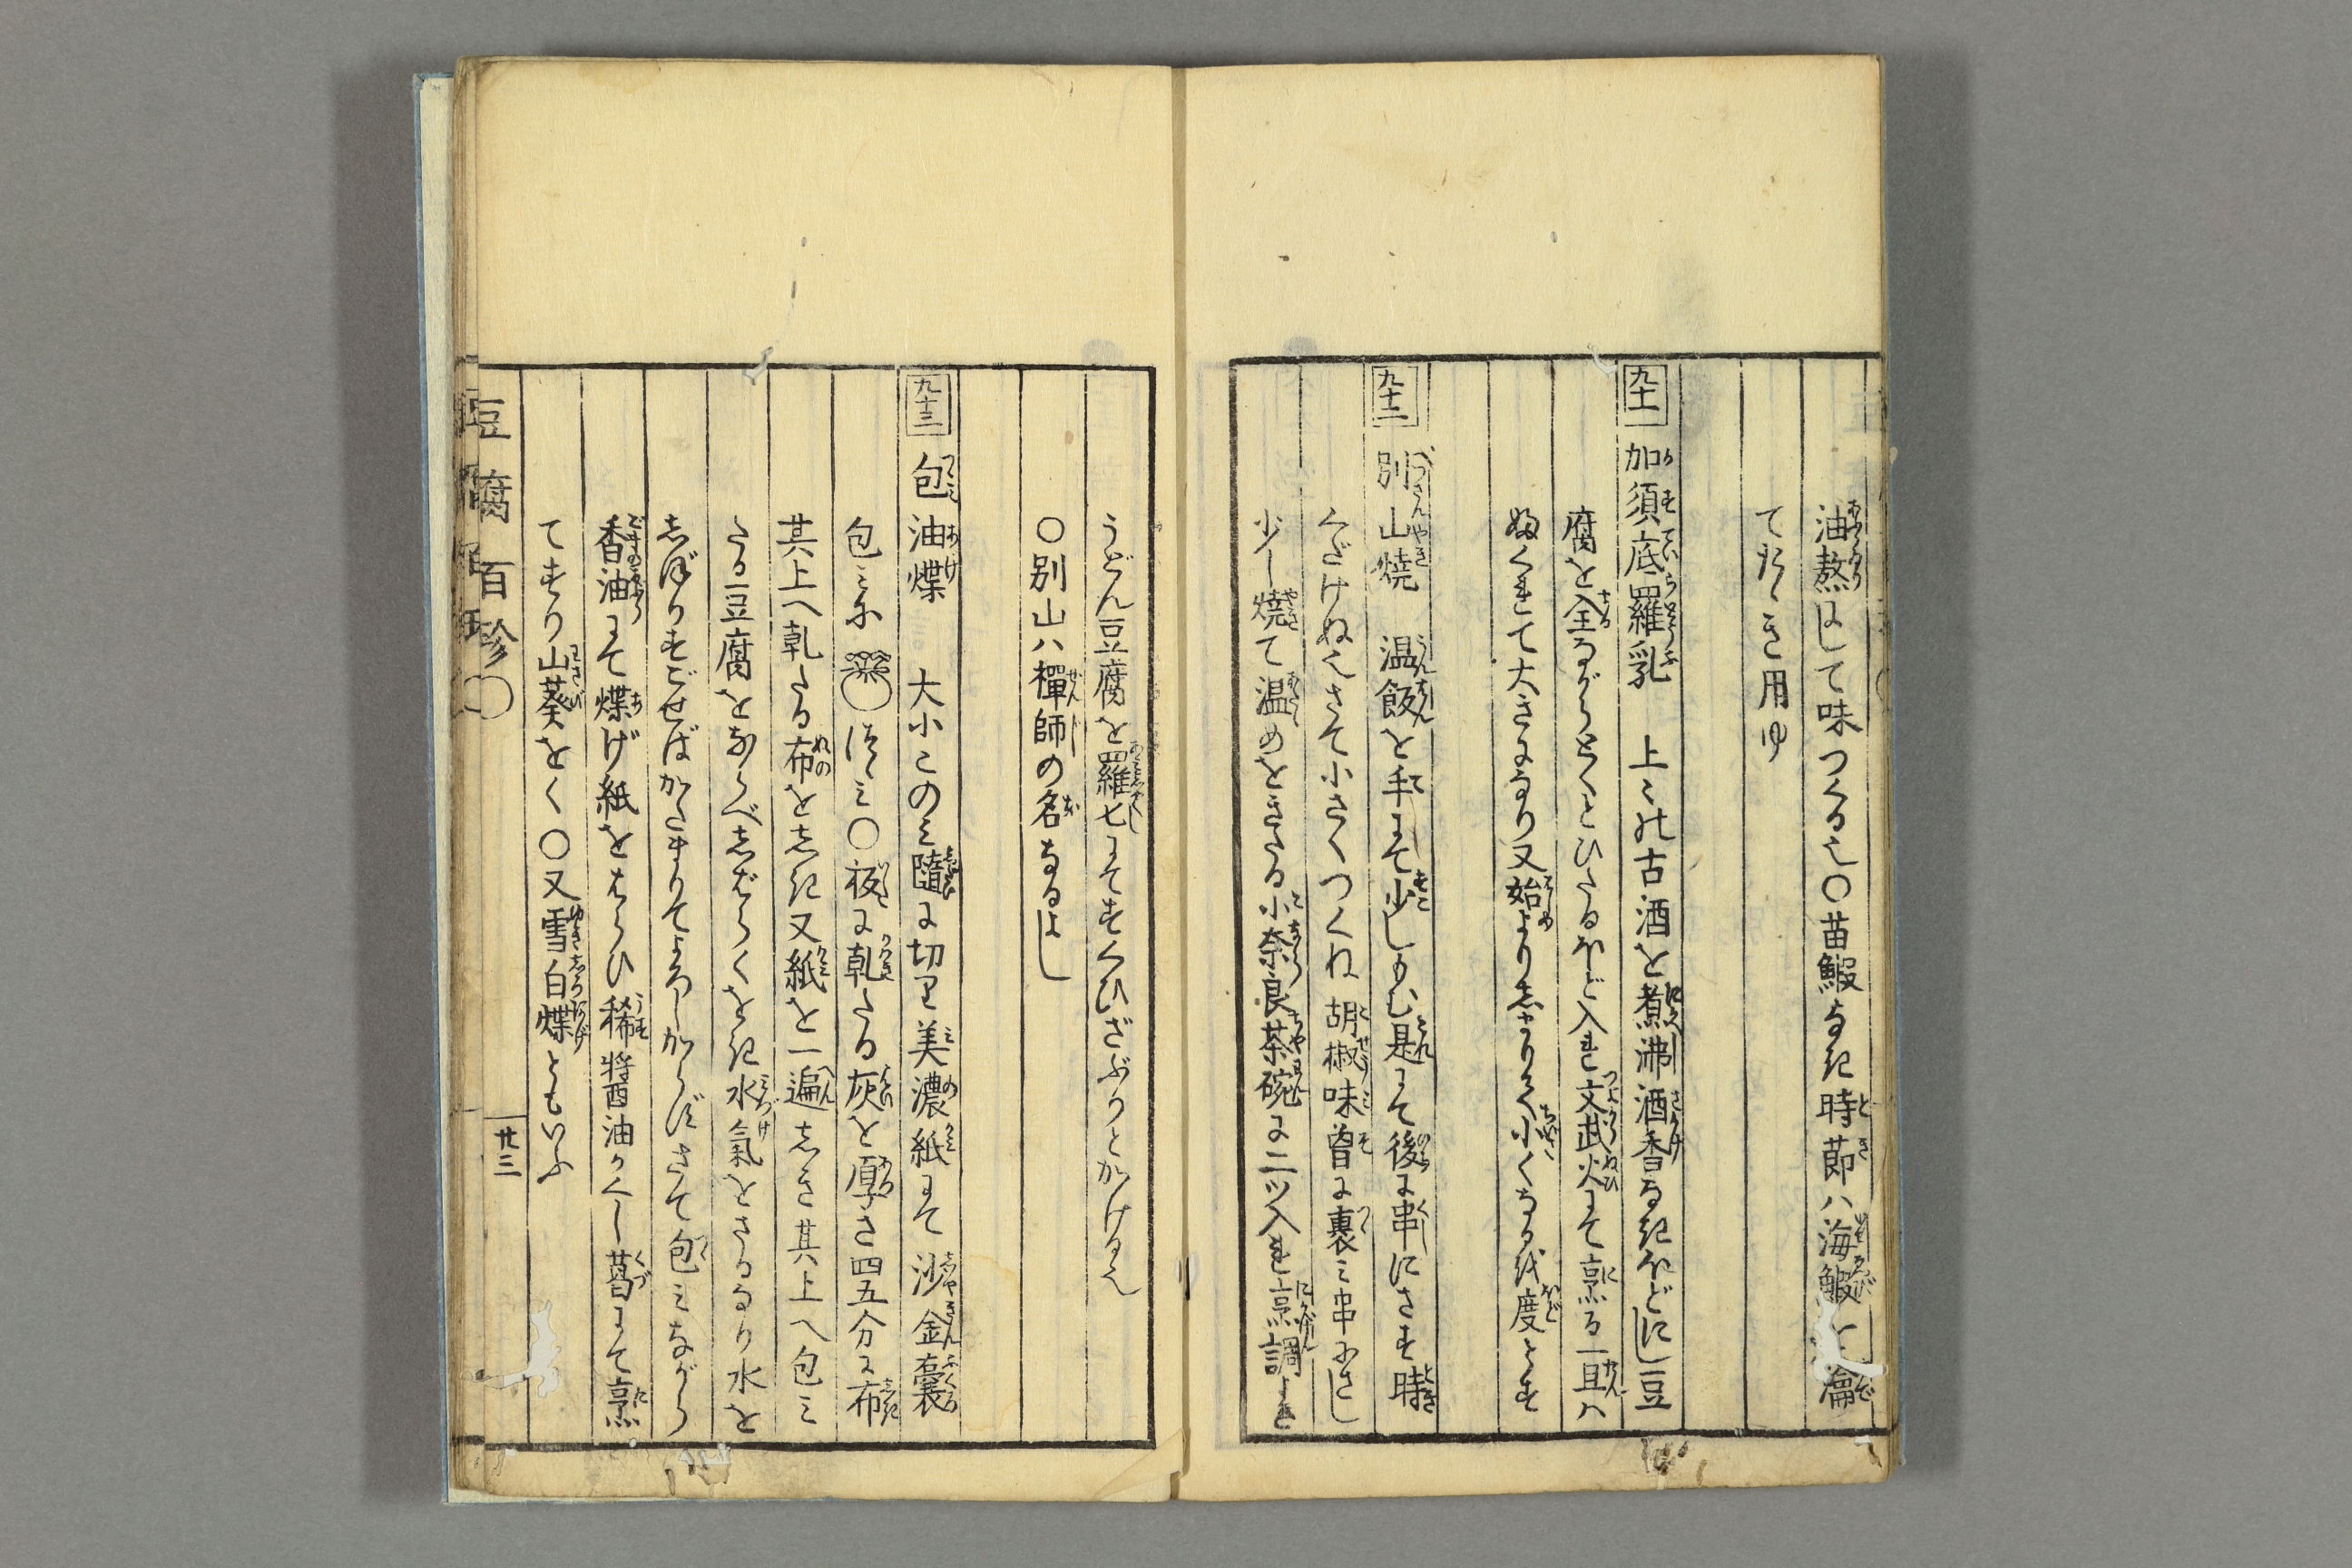 油熬にして味つくる也〇苗鰕なき時節ハ海鰕を瀹
てたゝき用ゆ
九十一 加須底羅乳 上々の古酒を煮沸酒香なきほどにし豆
腐を全ながらとくとひたるほど入れ文武火にて烹る一旦ハ
ふくれて大きになり又始より志まりて小くなる を度とす
九十二 別山焼 温飯を手にて少しもむ是にて後に串にさす時
くだけぬ也さて小さくつくね胡椒味曽に裹ミ串にさし
少し焼て温めをきたる小奈良茶碗に二ツ入れ烹調よき
うどん豆腐を羅匕にてすくひざぶりとかける也
〇別山ハ禪師の名なるよし
九十三 包油煠 大小このミ隨に切り美濃紙にて沙金嚢
包ミに つゝミ〇板に乾たる灰を厚さ四五分に布
其上へ乾たる布を志き又紙を一遍志き其上へ包ミ
たる豆腐をならべ志ばらくをき水氣をさるなり水を
志ぼりすごせばかたまりてよろしからずさて包ミながら
香油にて煠げ紙をはらひ稀醤油かくし葛にて烹
てすり山葵をく〇又雪白煠ともいふ
豆腐百珍〇
廿三